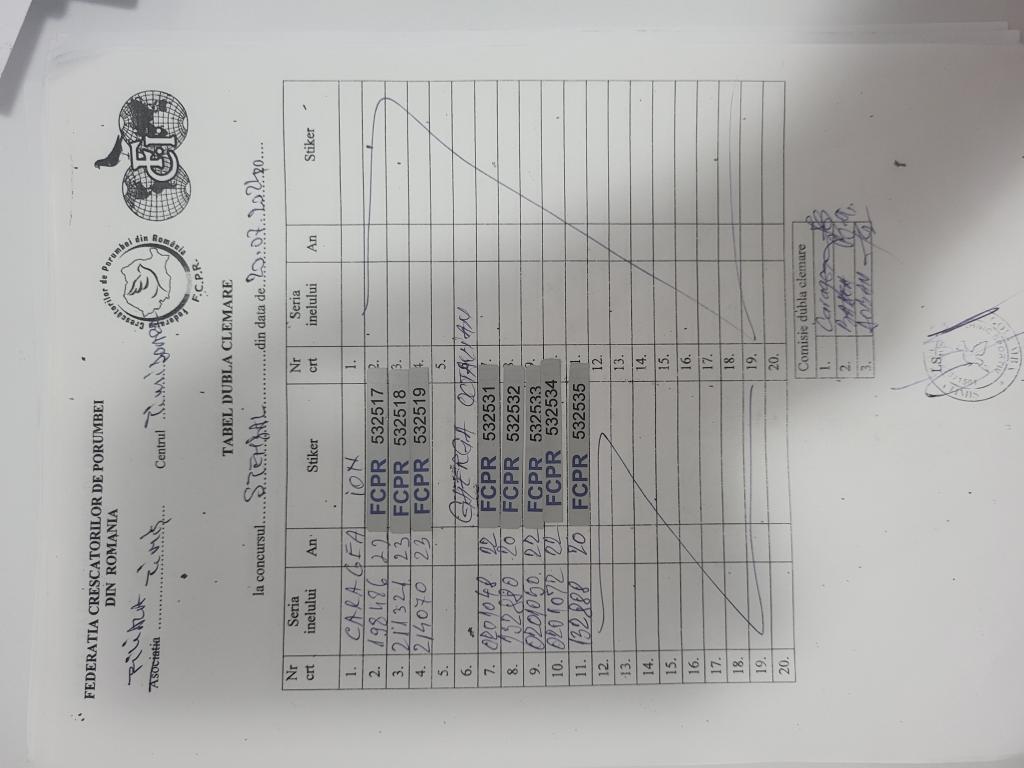 FEDERATIA CRESCATORILOR DE PORUMBEI
DIN ROMANIA
Federatia Crescatorilor de Porumbei din România
F.C.P.R.
Asociatia Centrul
TABEL DUBLA CLEMARE
la concursul din data de
Nr crt Seria inelului An Stiker Nr crt Seria inelului An Stiker
1. CARAGEA ION 1.
2. 198486 22 FCPR 532517 2.
3. 211321 23 FCPR 532518 3.
4. 214070 23 FCPR 532519 4.
5. 5.
6. GHERGA OCTAVIAN
7. 0201048 22 FCPR 532531 7.
8. 132880 20 FCPR 532532
9. 0201050 22 FCPR 532533 9.
10. 0201072 22 FCPR 532534
11. 132888 20 FCPR 532535 1.
12. 12.
13. 13.
14. 14.
15. 15.
16. 16.
17. 17.
18. 18.
19. 19.
20. 20.
Comisie dubla clemare
1.
2.
3.
L.S.